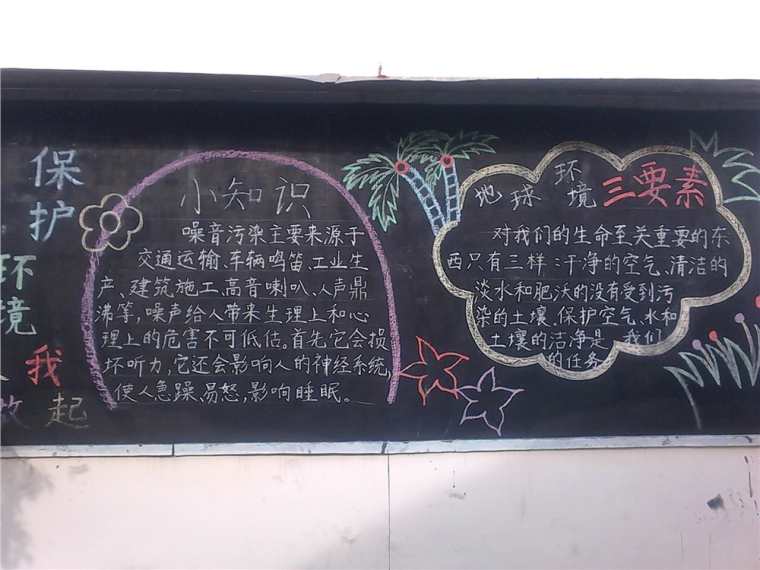 保护
环境
我
起
小知识
噪音污染主要来源于
交通运输、车辆鸣笛、工业生
产、建筑施工、高音喇叭、人声鼎
沸等,噪声给人带来生理上和心
理上的危害不可低估。首先它会损
坏听力,它还会影响人的神经系统,
使人急躁、易怒,影响睡眠。
地球环境三要素
对我们的生命至关重要的东
西只有三样:干净的空气、清洁的
淡水和肥沃的没有受到污
染的土壤、保护空气、水和
土壤的洁净是 我们
的任务